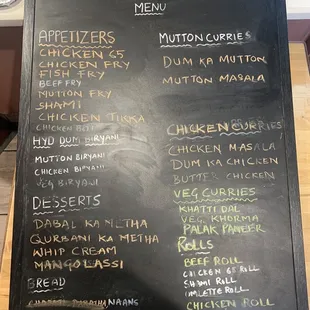 MENU
APPETIZERS
CHICKEN 65
CHICKEN FRY
FISH FRY
BEEF FRY
MUTION FRY
SHAMI
CHICKEN TIKKA
CHICKEN
HYD DUM BIRYANI
MUTTON BIRYANI
CHICKEN BIRYANI
VEG BIRYANI
DESSERTS
DABAL KA METHA
QURBANI KA METHA
WHIP CREAM
MANGO LASSI
BREAD
NAANS
MUTTON CURRIES
DUM KA MUTTON
MUTTON MASALA
CHICKEN CURRIES
CHICKEN MASALA
DUM KA CHICKEN
BUTTER CHICKEN
VEG CURRIES
KHATTI DAL
VEG. KHORMA
PALAK PANEER
ROLLS
BEEF ROLL
CHICKEN 65 ROLL
SHAMI ROLL
OMLETTE ROLL
CHICKEN ROLL